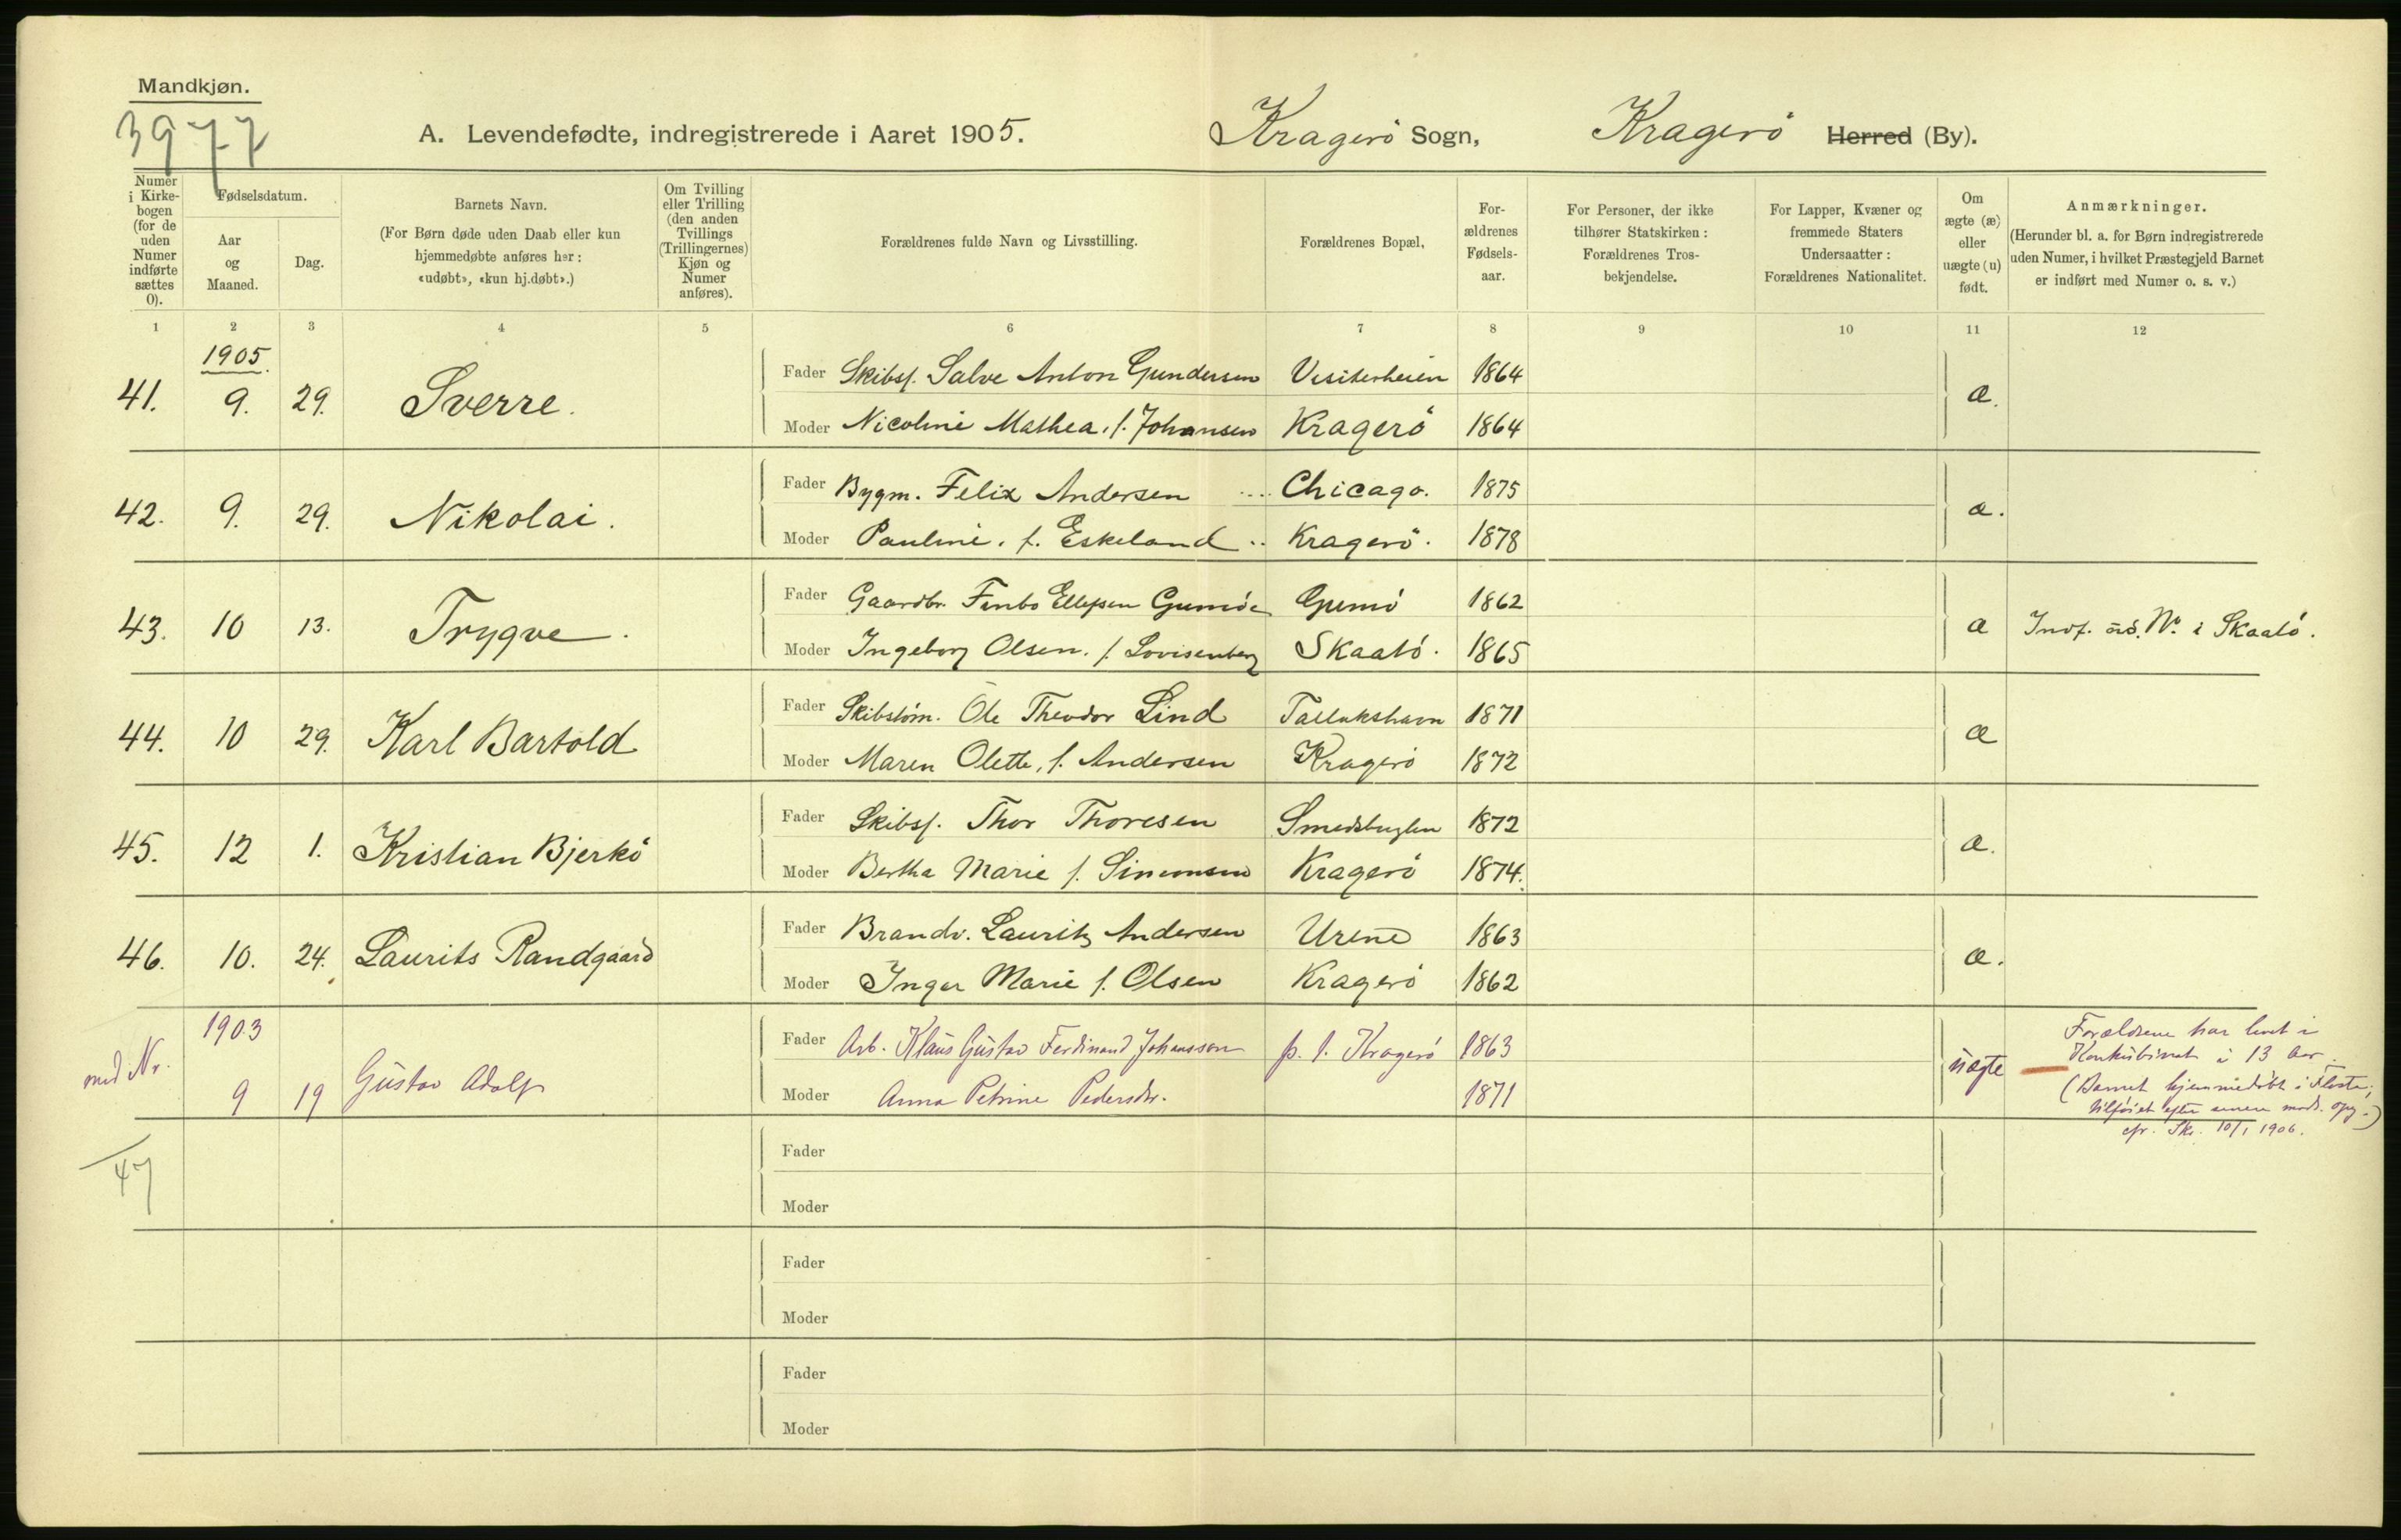 Mandkjøn.
3977
A. Levendefødte, indregistrerede i Aaret 1905.
Kragerö Sogn,
Kragerö Herred (By).
Numer i Kirke-bogen (for de uden Numer indførte sættes 0).
Fødselsdatum.
Aar og Maaned.
Dag.
Barnets Navn.
(For Børn døde uden Daab eller kun hjemmedøbte anføres her: «udøbt», «kun hj.døbt».)
Om Tvilling eller Trilling (den anden Tvillings (Trillingernes) Kjøn og Numer anføres).
Forældrenes fulde Navn og Livsstilling.
Forældrenes Bopæl,
For-ældrenes Fødsels-aar.
For Personer, der ikke tilhører Statskirken: Forældrenes Tros-bekjendelse.
For Lapper, Kvæner og fremmede Staters Undersaatter: Forældrenes Nationalitet.
Om ægte (æ) eller uægte (u) født.
Anmærkninger.
(Herunder bl. a. for Børn indregistrerede uden Numer, i hvilket Præstegjeld Barnet er indført med Numer o. s. v.)
1 2 3 4 5 6 7 8 9 10 11 12
1905.
41. 9. 29. Sverre. Fader Skibsf. Salve Anton Gundersen Visiterheien 1864 æ.
Moder Nicoline Mathea, f. Johansen Kragerö 1864
42. 9. 29. Nikolai. Fader Bygm. Felix Andersen Chicago. 1875 æ.
Moder Pauline. f. Eskeland Kragerö. 1878
43. 10 13. Trygve. Fader Gaardbr. Ellefsen Gumöe Gumö 1862 æ Indf. N° i Skaatö.
Moder Ingeborg Olsen. f. Lovisenberg Skaatö. 1865
44. 10 29. Karl Bartold Fader Skibstöm. Ole Theodor Lind Tallakshavn 1871 æ
Moder Maren Olette, f. Andersen Kragerö 1872
45. 12 1. Kristian Bjerkö Fader Skibsf. Thor Thoresen Smedsbuglen 1872 æ.
Moder Bertha Marie f. Simonsen Kragerö 1874.
46. 10. 24. Laurits Randgaard Fader Brandv. Laurits Andersen Urene 1863 æ.
Moder Inger Marie f. Olsen Kragerö 1862
1903
Fader Arb. Klaus Gustav Ferdinand Johansson p. t. Kragerö 1863
Nr. 9 19 Gustav Adolf uægte
Moder Anna Petrine Pedersdr. 1871
Forældrene har levet i
Konkubinat i 13 Aar.
(Barnet hjemmedöbt i
tilföiet efter senere opg.)
cfr. Skr. 10/1 1906.
47
Fader
Moder
Fader
Moder
Fader
Moder